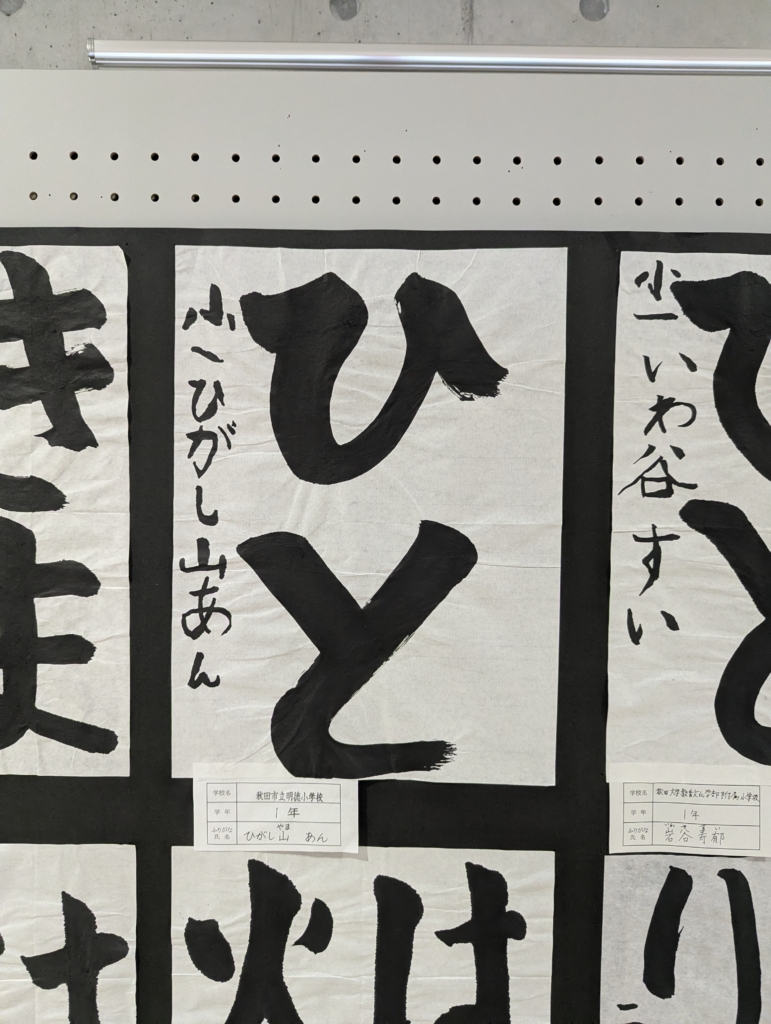 ひと
小一ひがし山あん
学校名 秋田市立明徳小学校
学年 1年
ふりがな やま
氏名 ひがし山 あん
小一いわ谷すい
学校名 秋田大学教育文化学部附属小学校
学年 1年
ふりがな
氏名 岩谷
きま
火は
り